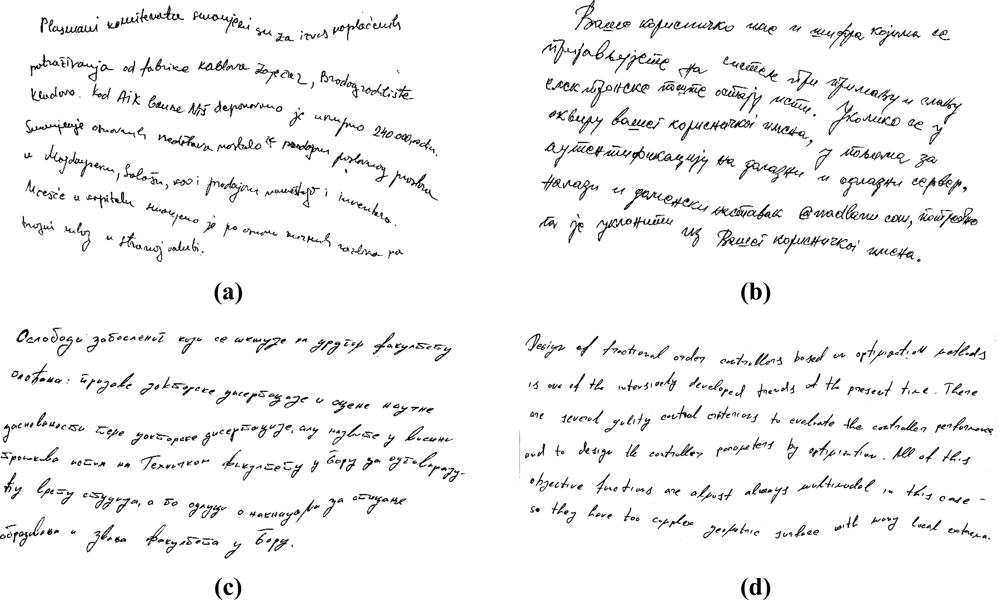 Plasmani komitenata smanjeni su za iznos naplaćenih
potraživanja od fabrike kablova Zaječar, Brodogradilište
Kladovo. Kod Aik banke Niš deponovano je ukupno 240000,00din.
Smanjenje osnovnih sredstava nastalo je prodajom poslovnog prostora
u Majdanpeku, Salašu, kao i prodajom nameštaja i inventara.
Učešće u kapitalu smanjeno je po osnovu kursnih razlika na
trajni ulog u stranoj valuti.
(a)
Ваше корисничко име и шифра којима се
пријављујете на систем при пријему и слању
електронске поште остају исти. Уколико се у
оквиру вашег корисничког имена, у пољима за
аутентификацију на долазни и одлазни сервер,
налази и доменски наставак @madbanu com, потребно
га је уклонити из Вашег корисничког имена.
(b)
Ослободи запосленог који се школује на другом факултету
плаћања: пријаве докторске дисертације и оцене научне
заснованости теме докторске дисертације, ану назвите у висини
трошкова истих на Техничком факултету у Бору за одговарају-
ћу врсту студија, а по одлуци о накнадама за стицање
образовања и звања факултета у Бору.
(c)
Design of fractional order controllers based on optimization methods
is one of the intensively developed trends of the present time. There
are several quility control criterions to evaluate the controller performance
and to design the controller parameters by optimization. All of this
objective functions are almost always multimodal in this case -
so they have too complex geometric surface with many local extrema.
(d)